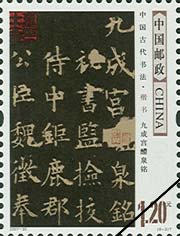 中国邮政
CHINA
中国古代书法·楷书 九成宫醴泉铭
九成宮醴泉銘
秘書監撿挍
侍中鉅鹿郡
公臣魏徵奉
1.20元